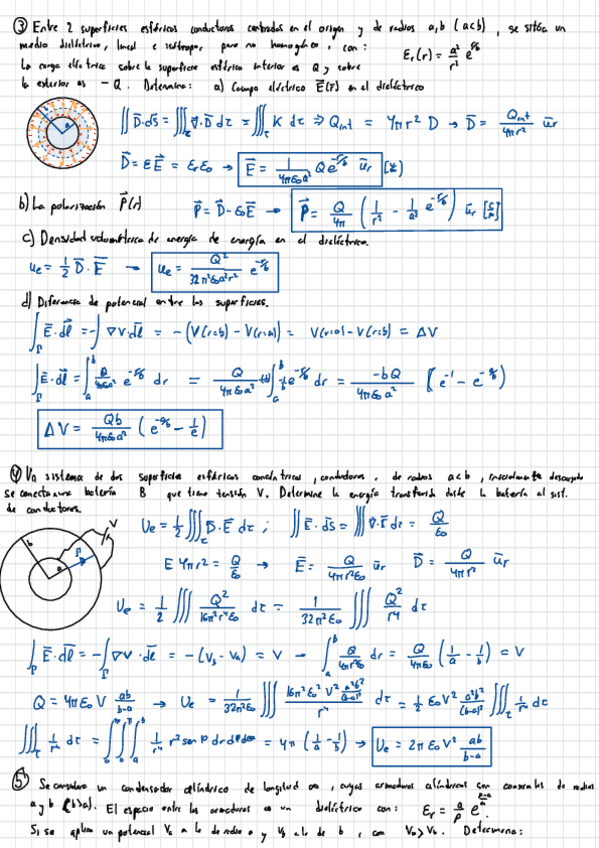 ③ Entre 2 superficies esféricas conductoras centradas en el origen y de radios a, b (a<b), se sitúa un
medio dieléctrico, lineal e isótropo, pero no homogéneo, con: εr(r) = a²/r² e^(r/b)
La carga eléctrica sobre la superficie esférica interior es Q y sobre
la exterior es -Q. Determine: a) Campo eléctrico E⃗(r⃗) en el dieléctrico
∬ D⃗·ds⃗ = ∭τ ∇·D⃗ dτ = ∭τ K dτ ⇒ Qint = 4πr² D → D⃗ = Qint/4πr² u⃗r
D⃗ = εE⃗ = εrε0 → E⃗ = 1/4πε0a² Qe^(-r/b) u⃗r
b) La polarización P⃗(r) P⃗ = D⃗ - ε0E⃗ → P⃗ = Q/4π (1/r² - 1/a² e^(-r/b)) u⃗r
c) Densidad volumétrica de energía de energía en el dieléctrico.
ue = 1/2 D⃗·E⃗ → ue = Q²/32π²ε0a²r² e^(-r/b)
d) Diferencia de potencial entre las superficies.
∫Γ E⃗·dl⃗ = -∫ ∇V·dl⃗ = -(V(r=b) - V(r=a)) = V(r=a) - V(r=b) = ΔV
∫Γ E⃗·dl⃗ = ∫a^b Q/4πε0a² e^(-r/b) dr = Q/4πε0a² ∫a^b e^(-r/b) dr = -bQ/4πε0a² (e^-1 - e^(-a/b))
ΔV = Qb/4πε0a² (e^(-a/b) - 1/e)
④ Un sistema de dos superficies esféricas concéntricas, conductoras, de radios a<b, inicialmente descargado
se conecta a una batería B que tiene tensión V. Determine la energía transferida desde la batería al sist.
de conductores.
b
a
V
Ue = 1/2 ∭ D⃗·E⃗ dτ ; ∬ E⃗·ds⃗ = ∭ ∇·E⃗ dτ = Q/ε0
E 4πr² = Q/ε0 → E⃗ = Q/4πr²ε0 u⃗r D⃗ = Q/4πr² u⃗r
Ue = 1/2 ∭ Q²/16π²r⁴ε0 dτ = 1/32π²ε0 ∭ Q²/r⁴ dτ
∫Γ E⃗·dl⃗ = -∫Γ ∇V·dl⃗ = -(Vb - Va) = V → ∫a^b Q/4πr²ε0 dr = Q/4πε0 (1/a - 1/b) = V
Q = 4πε0 V ab/b-a → Ue = 1/32π²ε0 ∭ 16π²ε0² V² a²b²/(b-a)² / r⁴ dτ = 1/2 ε0V² a²b²/(b-a)² ∭τ 1/r⁴ dτ
∭τ 1/r⁴ dτ = ∫∫∫ 1/r⁴ r² sen dr = 4π (1/a - 1/b) → Ue = 2πε0V² ab/b-a
⑤ Se considera un condensador cilíndrico de longitud ∞, cuyas armaduras cilíndricas son coaxiales de radios
a y b (b>a). El espacio entre las armaduras es un dieléctrico con: εr = a/ρ e
Si se aplica un potencial Va a la de radio a y Vb a la de b, con Va>Vb. Determine: